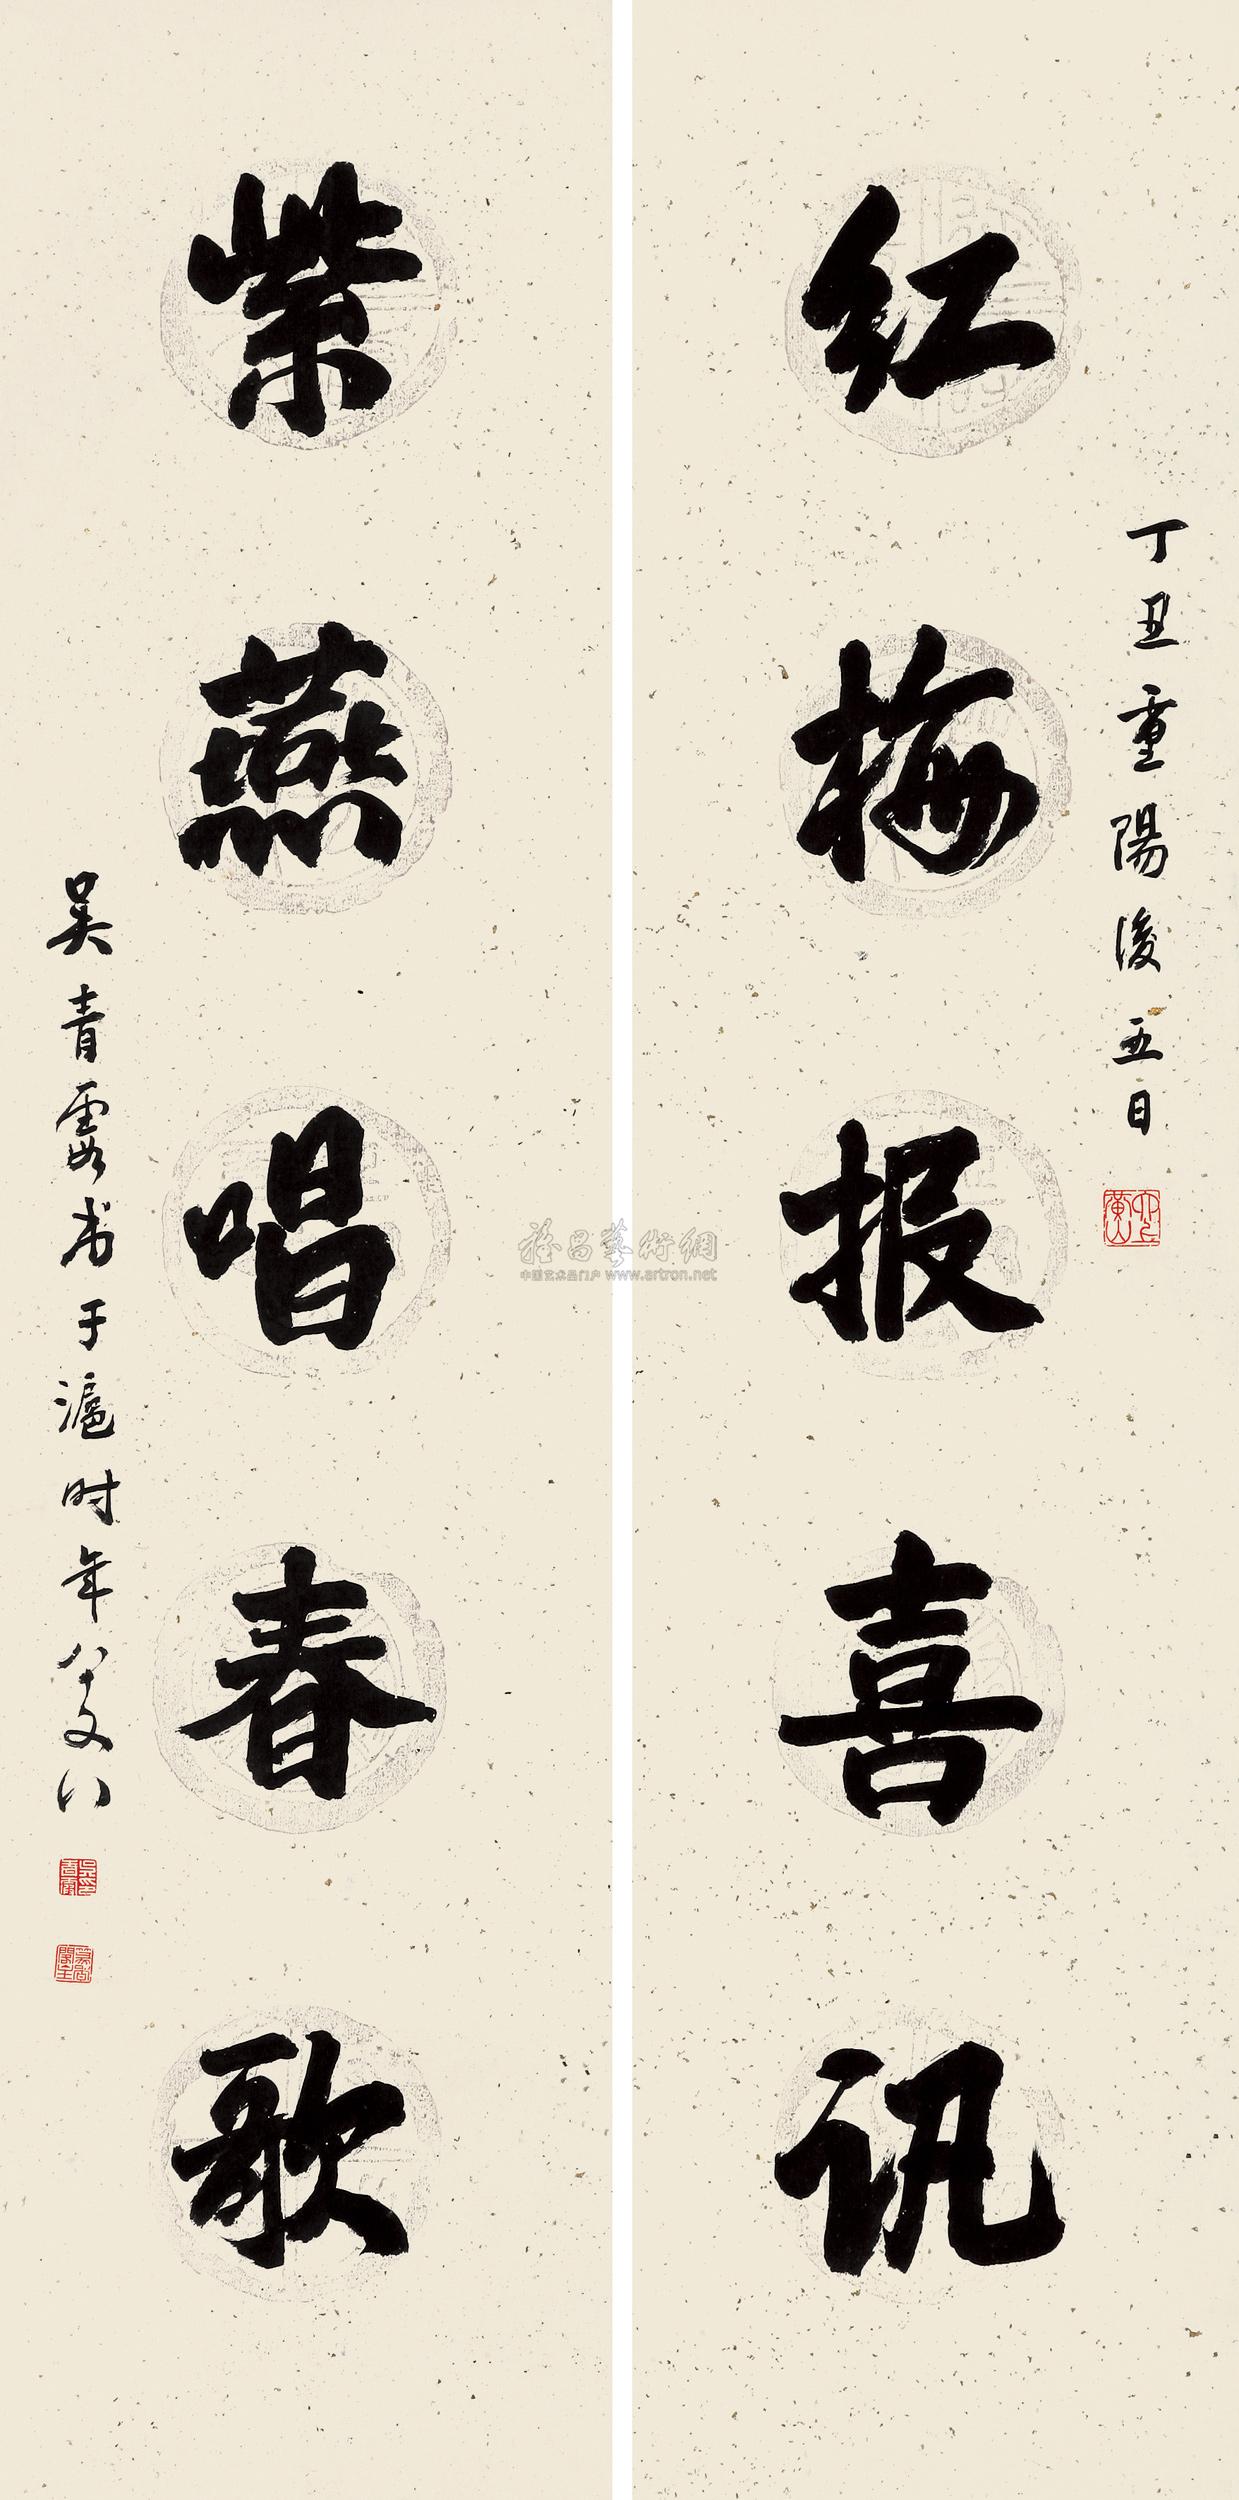 红梅报喜讯
丁丑重陽後五日
紫燕唱春歌
吴青霞书于滬时年八十又八
雅昌藝術網
中国艺术品门户 www.artron.net